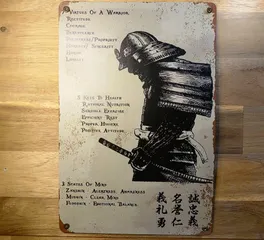 Virtues Of A Warrior
Rectitude
Courage
Benevolence
Politeness/Propriety
Honesty/ Sincerity
Honor
Loyalty
5 Keys To Health
Rational Nutrition
Sensible Exercise
Efficient Rest
Proper Hygiene
Positive Attitude
3 States Of Mind
Zanshin - Alertness, Awareness
Mushin - Clear Mind
Fudoshin - Emotional Balance
義礼勇
名誉仁
誠忠義